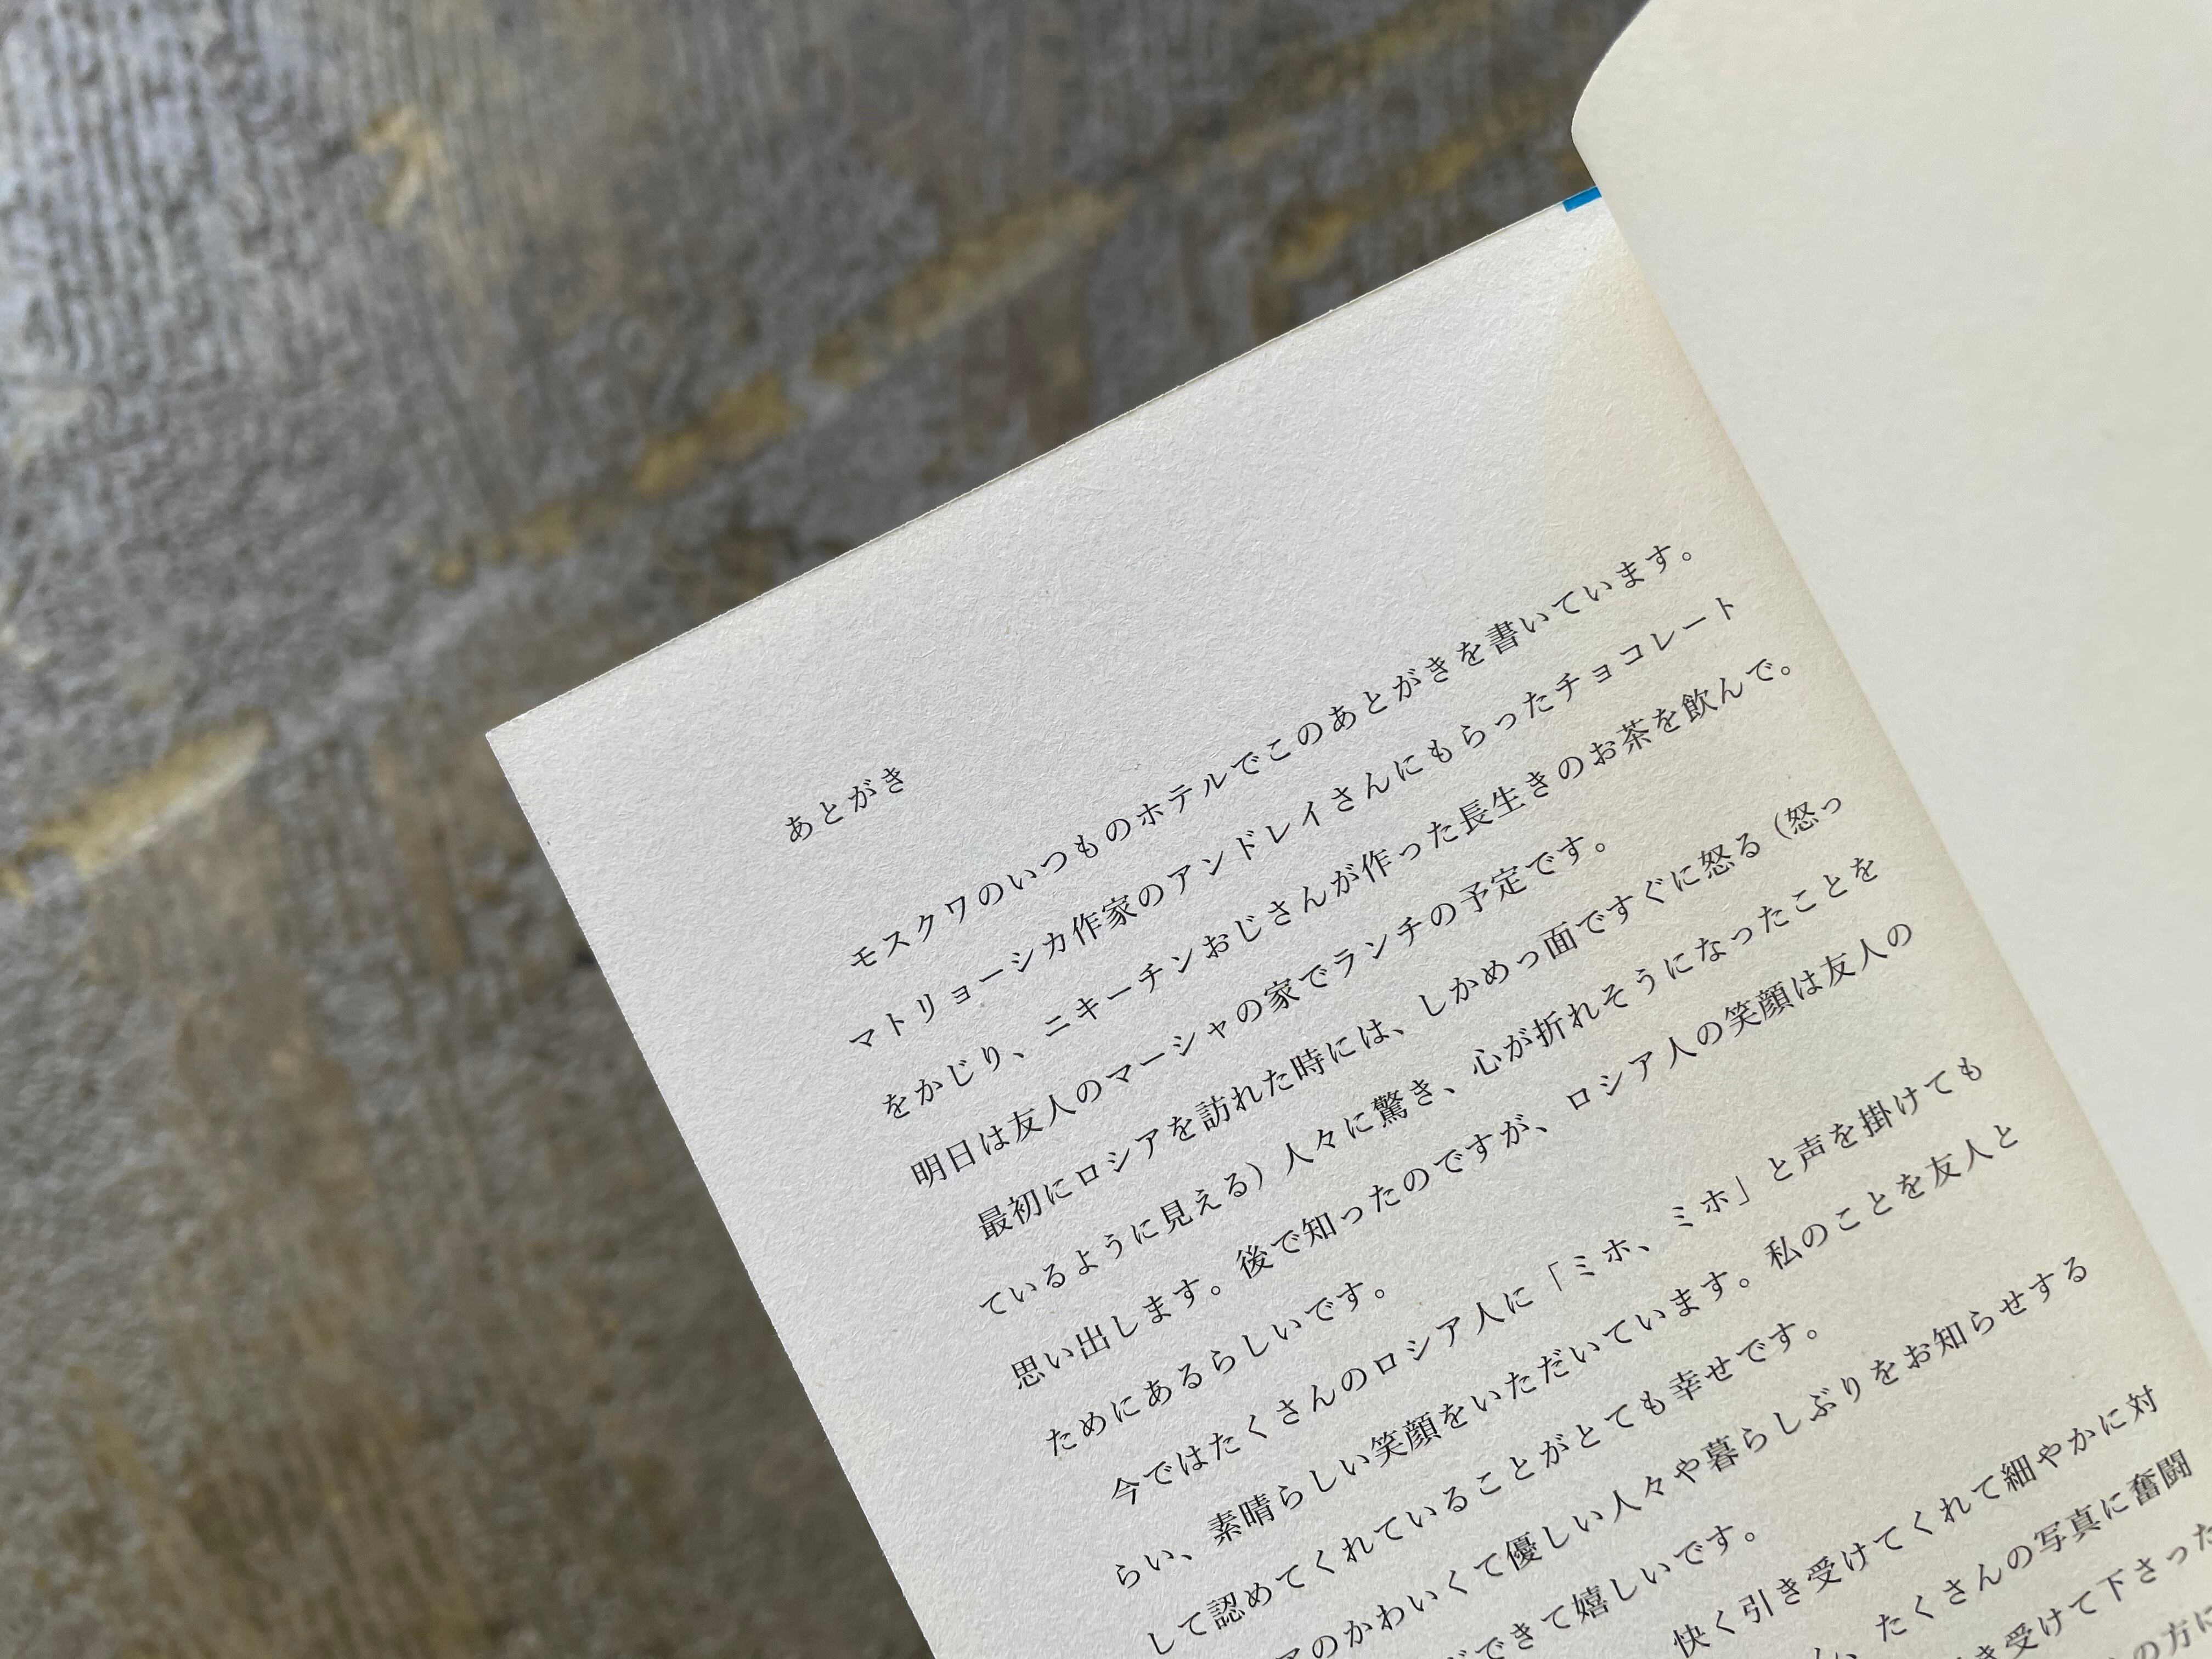 あとがき
モスクワのいつものホテルでこのあとがきを書いています。
マトリョーシカ作家のアンドレイさんにもらったチョコレート
をかじり、ニキーチンおじさんが作った長生きのお茶を飲んで。
明日は友人のマーシャの家でランチの予定です。
最初にロシアを訪れた時には、しかめっ面ですぐに怒る（怒っ
ているように見える）人々に驚き、心が折れそうになったことを
思い出します。後で知ったのですが、ロシア人の笑顔は友人の
ためにあるらしいです。
今ではたくさんのロシア人に「ミホ、ミホ」と声を掛けても
らい、素晴らしい笑顔をいただいています。私のことを友人と
して認めてくれていることがとても幸せです。
アのかわいくて優しい人々や暮らしぶりをお知らせする
ができて嬉しいです。
快く引き受けてくれて細やかに対
たくさんの写真に奮闘
き受けて下さった
の方に